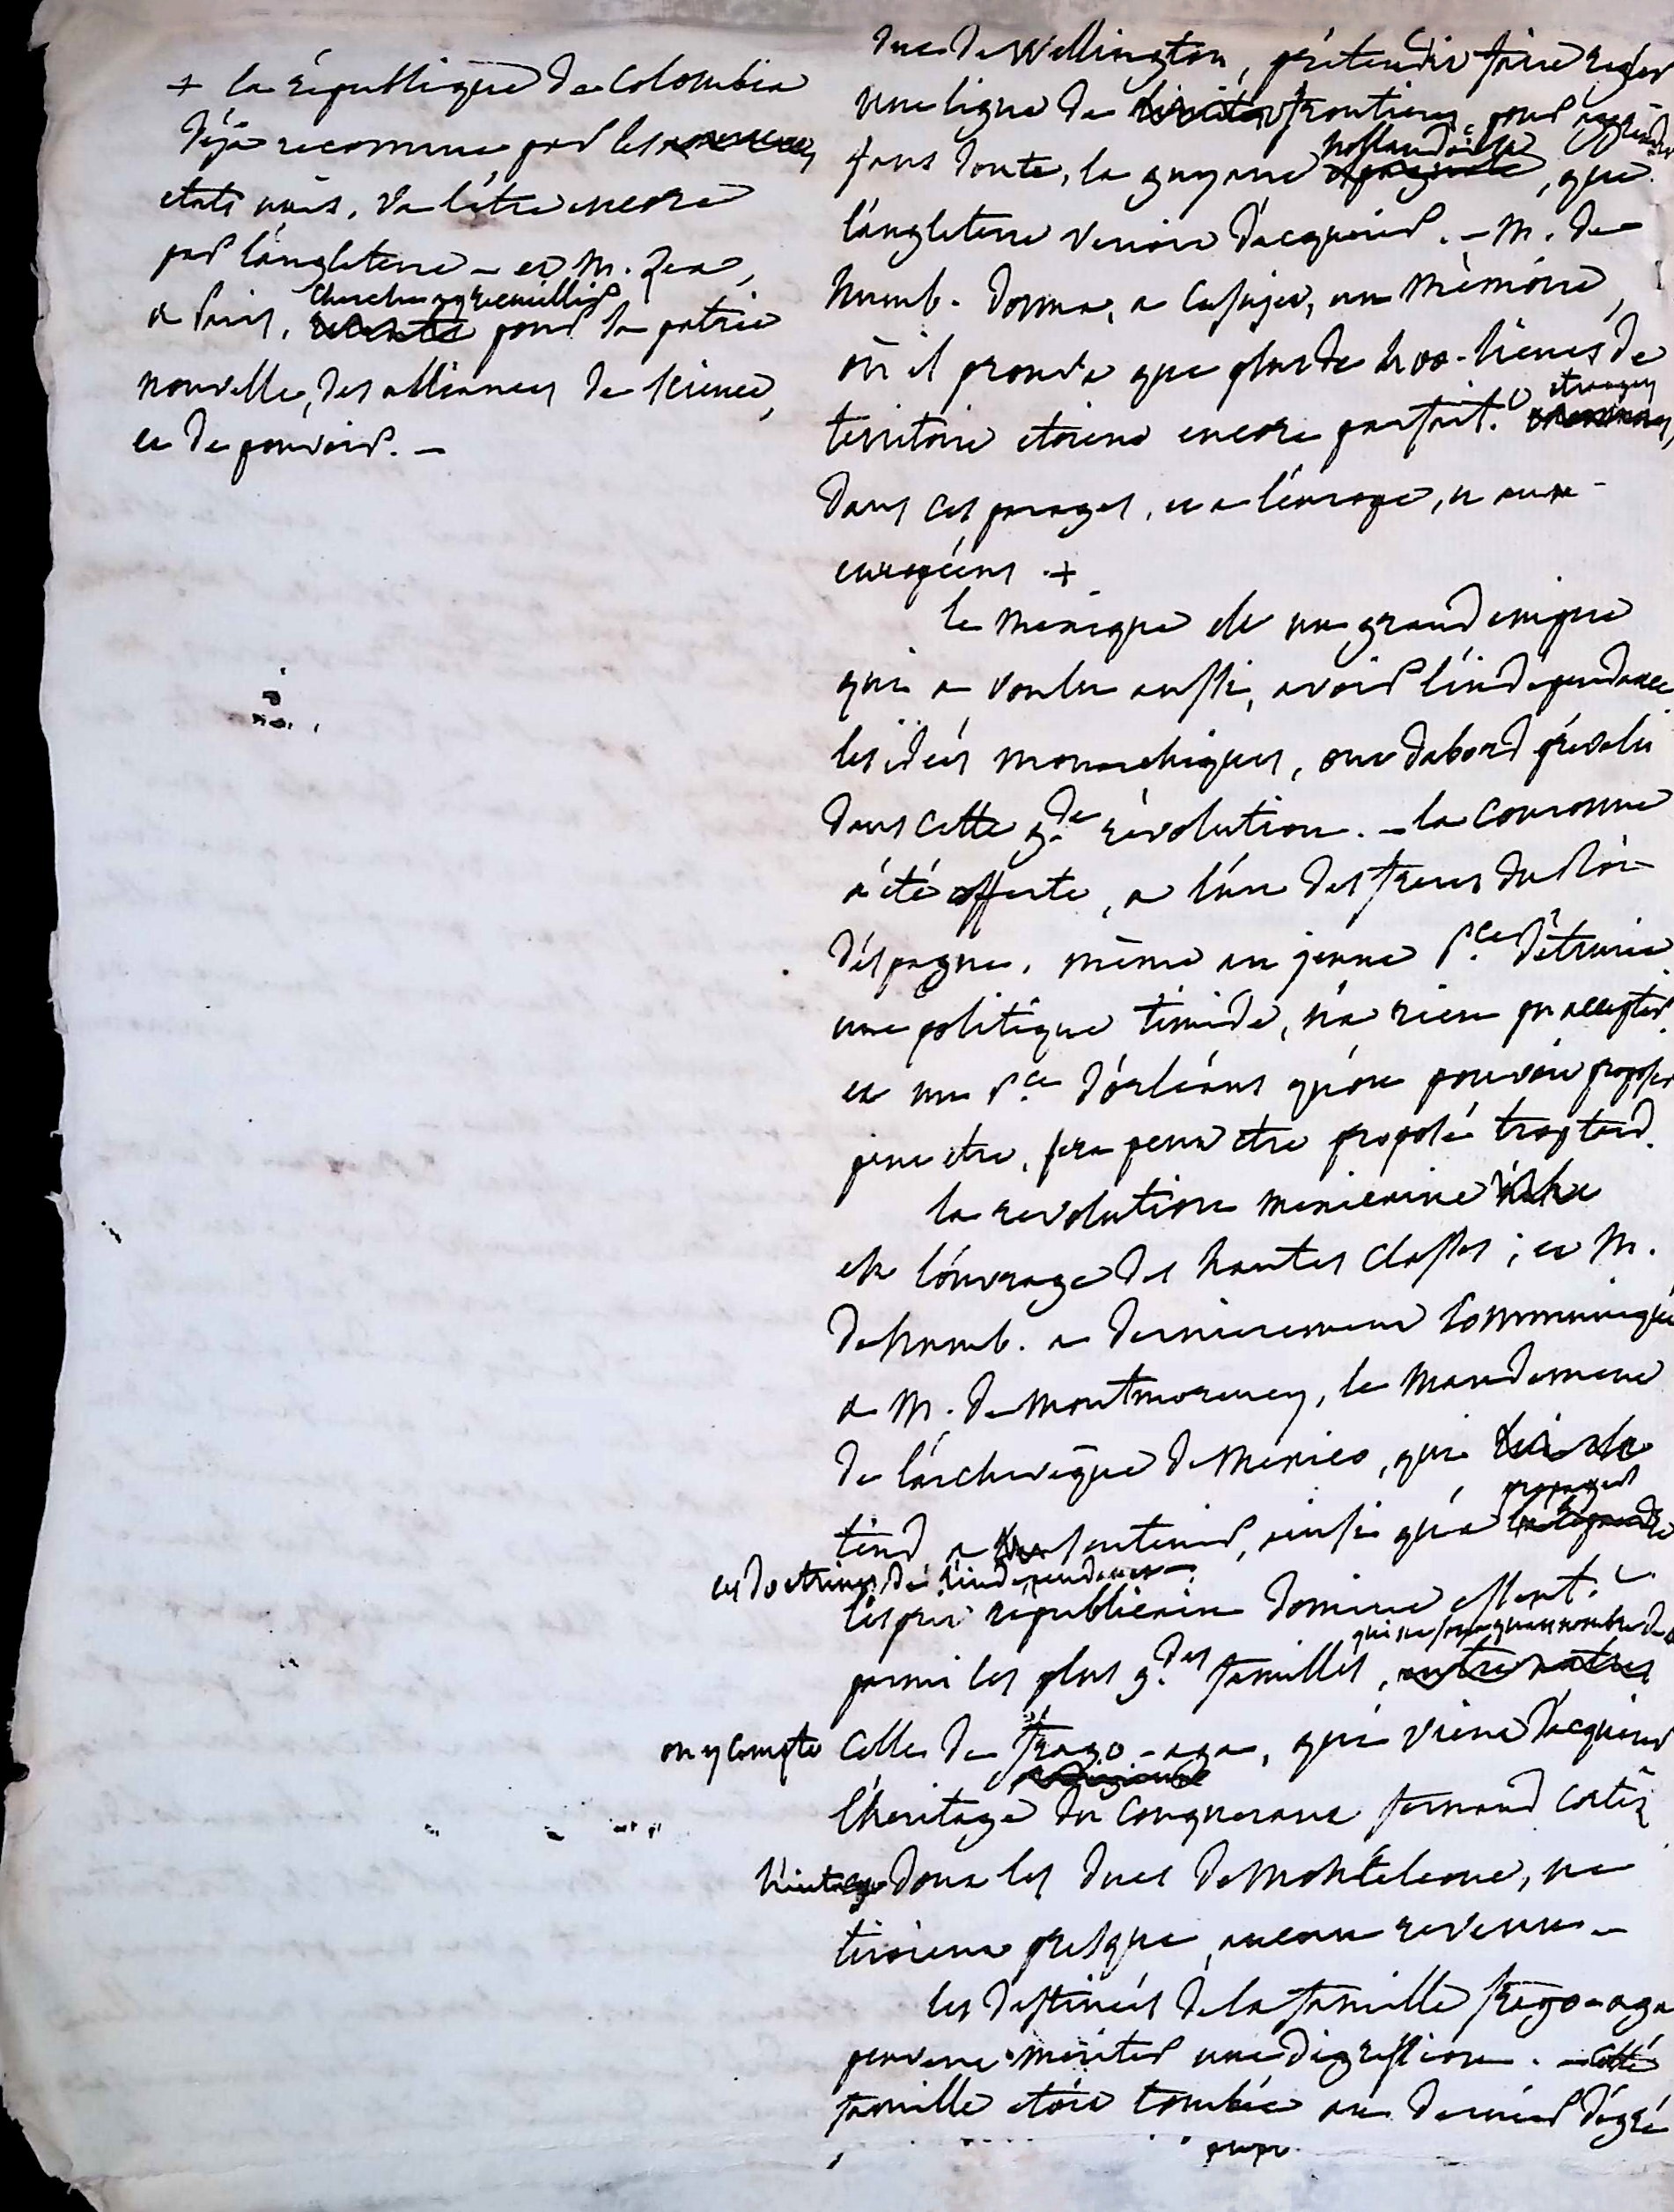 + la république de Colombia
déjà reconnue, par les
etats unis, va l'être encore
par l'angleterre – et M. Zea,
a paris, cherche a recueillir
pour sa patrie
nouvelle, des alliances de science,
et de pouvoir. –
duc de Wellington, prétendit faire regler
une ligne de limites frontieres, pour
sans doute, la guyane hollandoise espagnole, que
l'angleterre venoit d'acquerir. – M. de
humb. donna, a ce sujet, un mémoire,
où il prouva que plus de lieues de
territoire etoient encore parfait.t etrangers
dans ces parages, et a l'europe, et aux
européens . +
le mexique est un grand empire
qui a voulu aussi, avoir l'indépendance
les idées monarchiques, ont dabord prévalu
dans cette g.de révolution. – la couronne
a été offerte, a l'un des freres du Roi
d'éspagne, même au jeune P.ce d'étrurie
une politique timide, n'a rien pu accepter.
et un P.ce d'orléans qu'on pouvoit proposer
peut etre, sera peut etre proposé trop tard.
la revolution mexicaine
est l'ouvrage des hautes classes ; et M.
de humb. a dernierement communiqué
a M. de Montmorency, le mandement
de l'archevêque de Mexico, qui
tend a soutenir, ainsi qu'a propager
les doctrines de l'indépendance –
l'esprit républicain domine essent.t
qui ne sont qu'au nombre de
parmi les plus g.des familles, entre autres
on y compte celle de frago-aga, qui vient d'acquerir
l'heritage du conquerant fernand cortez
dont les ducs de Monteleone, ne
tiroient presque, aucun revenu –
les destinées de la famille frago-aga
peuvent mériter une digression. – cette
famille etoit tombée au dernier dégré